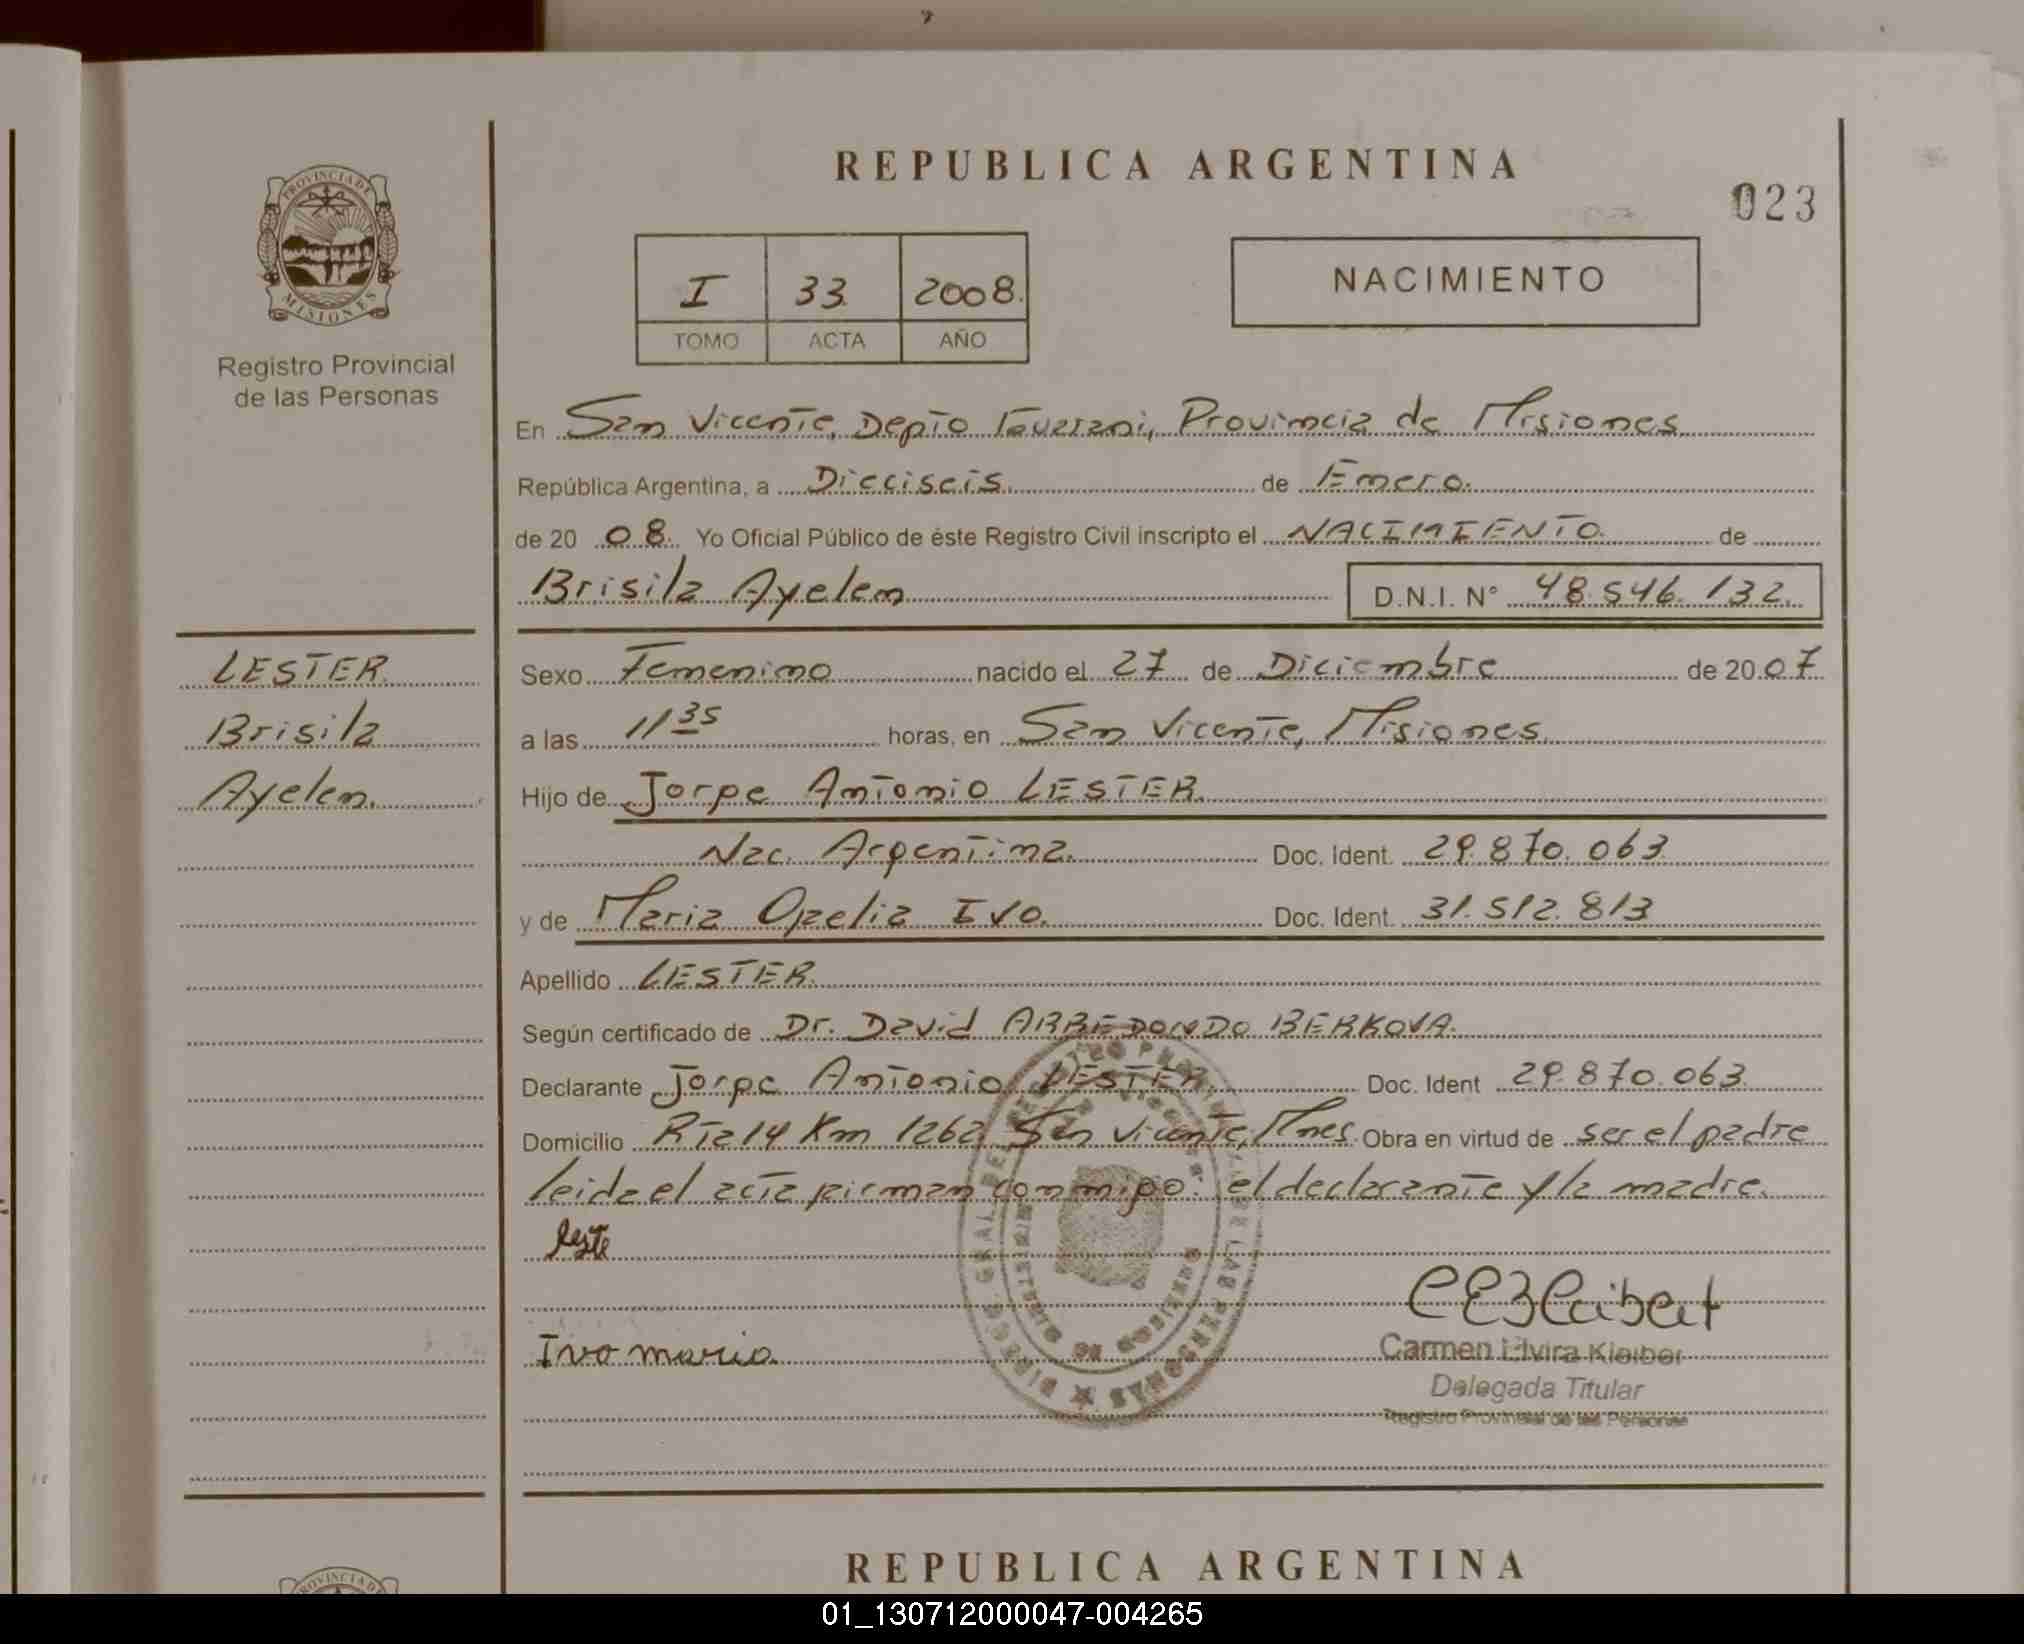 REPUBLICA ARGENTINA
023
PROVINCIA DE
MISIONES
Registro Provincial
de las Personas
I 33 2008.
TOMO ACTA AÑO
NACIMIENTO
En San Vicente, Depto Guarani, Provincia de Misiones
República Argentina, a Dieciseis. de Enero.
de 20 08. Yo Oficial Público de éste Registro Civil inscripto el NACIMIENTO. de
Brisila Ayelen D.N.I. N° 48.546.132.
LESTER
Brisila
Ayelen.
Sexo Femenino nacido el 27 de Diciembre de 20 07
a las 11 35 horas, en San Vicente, Misiones.
Hijo de Jorge Antonio LESTER.
Nac. Argentina. Doc. Ident. 29.870.063
y de Maria Ofelia IVO. Doc. Ident. 31.512.813
Apellido LESTER.
Según certificado de Dr. David ARREDONDO BERKOVA.
Declarante Jorge Antonio LESTER. Doc. Ident 29.870.063
Domicilio Rta 14 Km 1262 San Vicente, Mnes. Obra en virtud de ser el padre
leida el acta firman conmigo: el declarante y la madre.
Ivo maria
Carmen Elvira Kleiber
Delegada Titular
Registro Provincial de las Personas
REPUBLICA ARGENTINA
PROVINCIA D
01_130712000047-004265